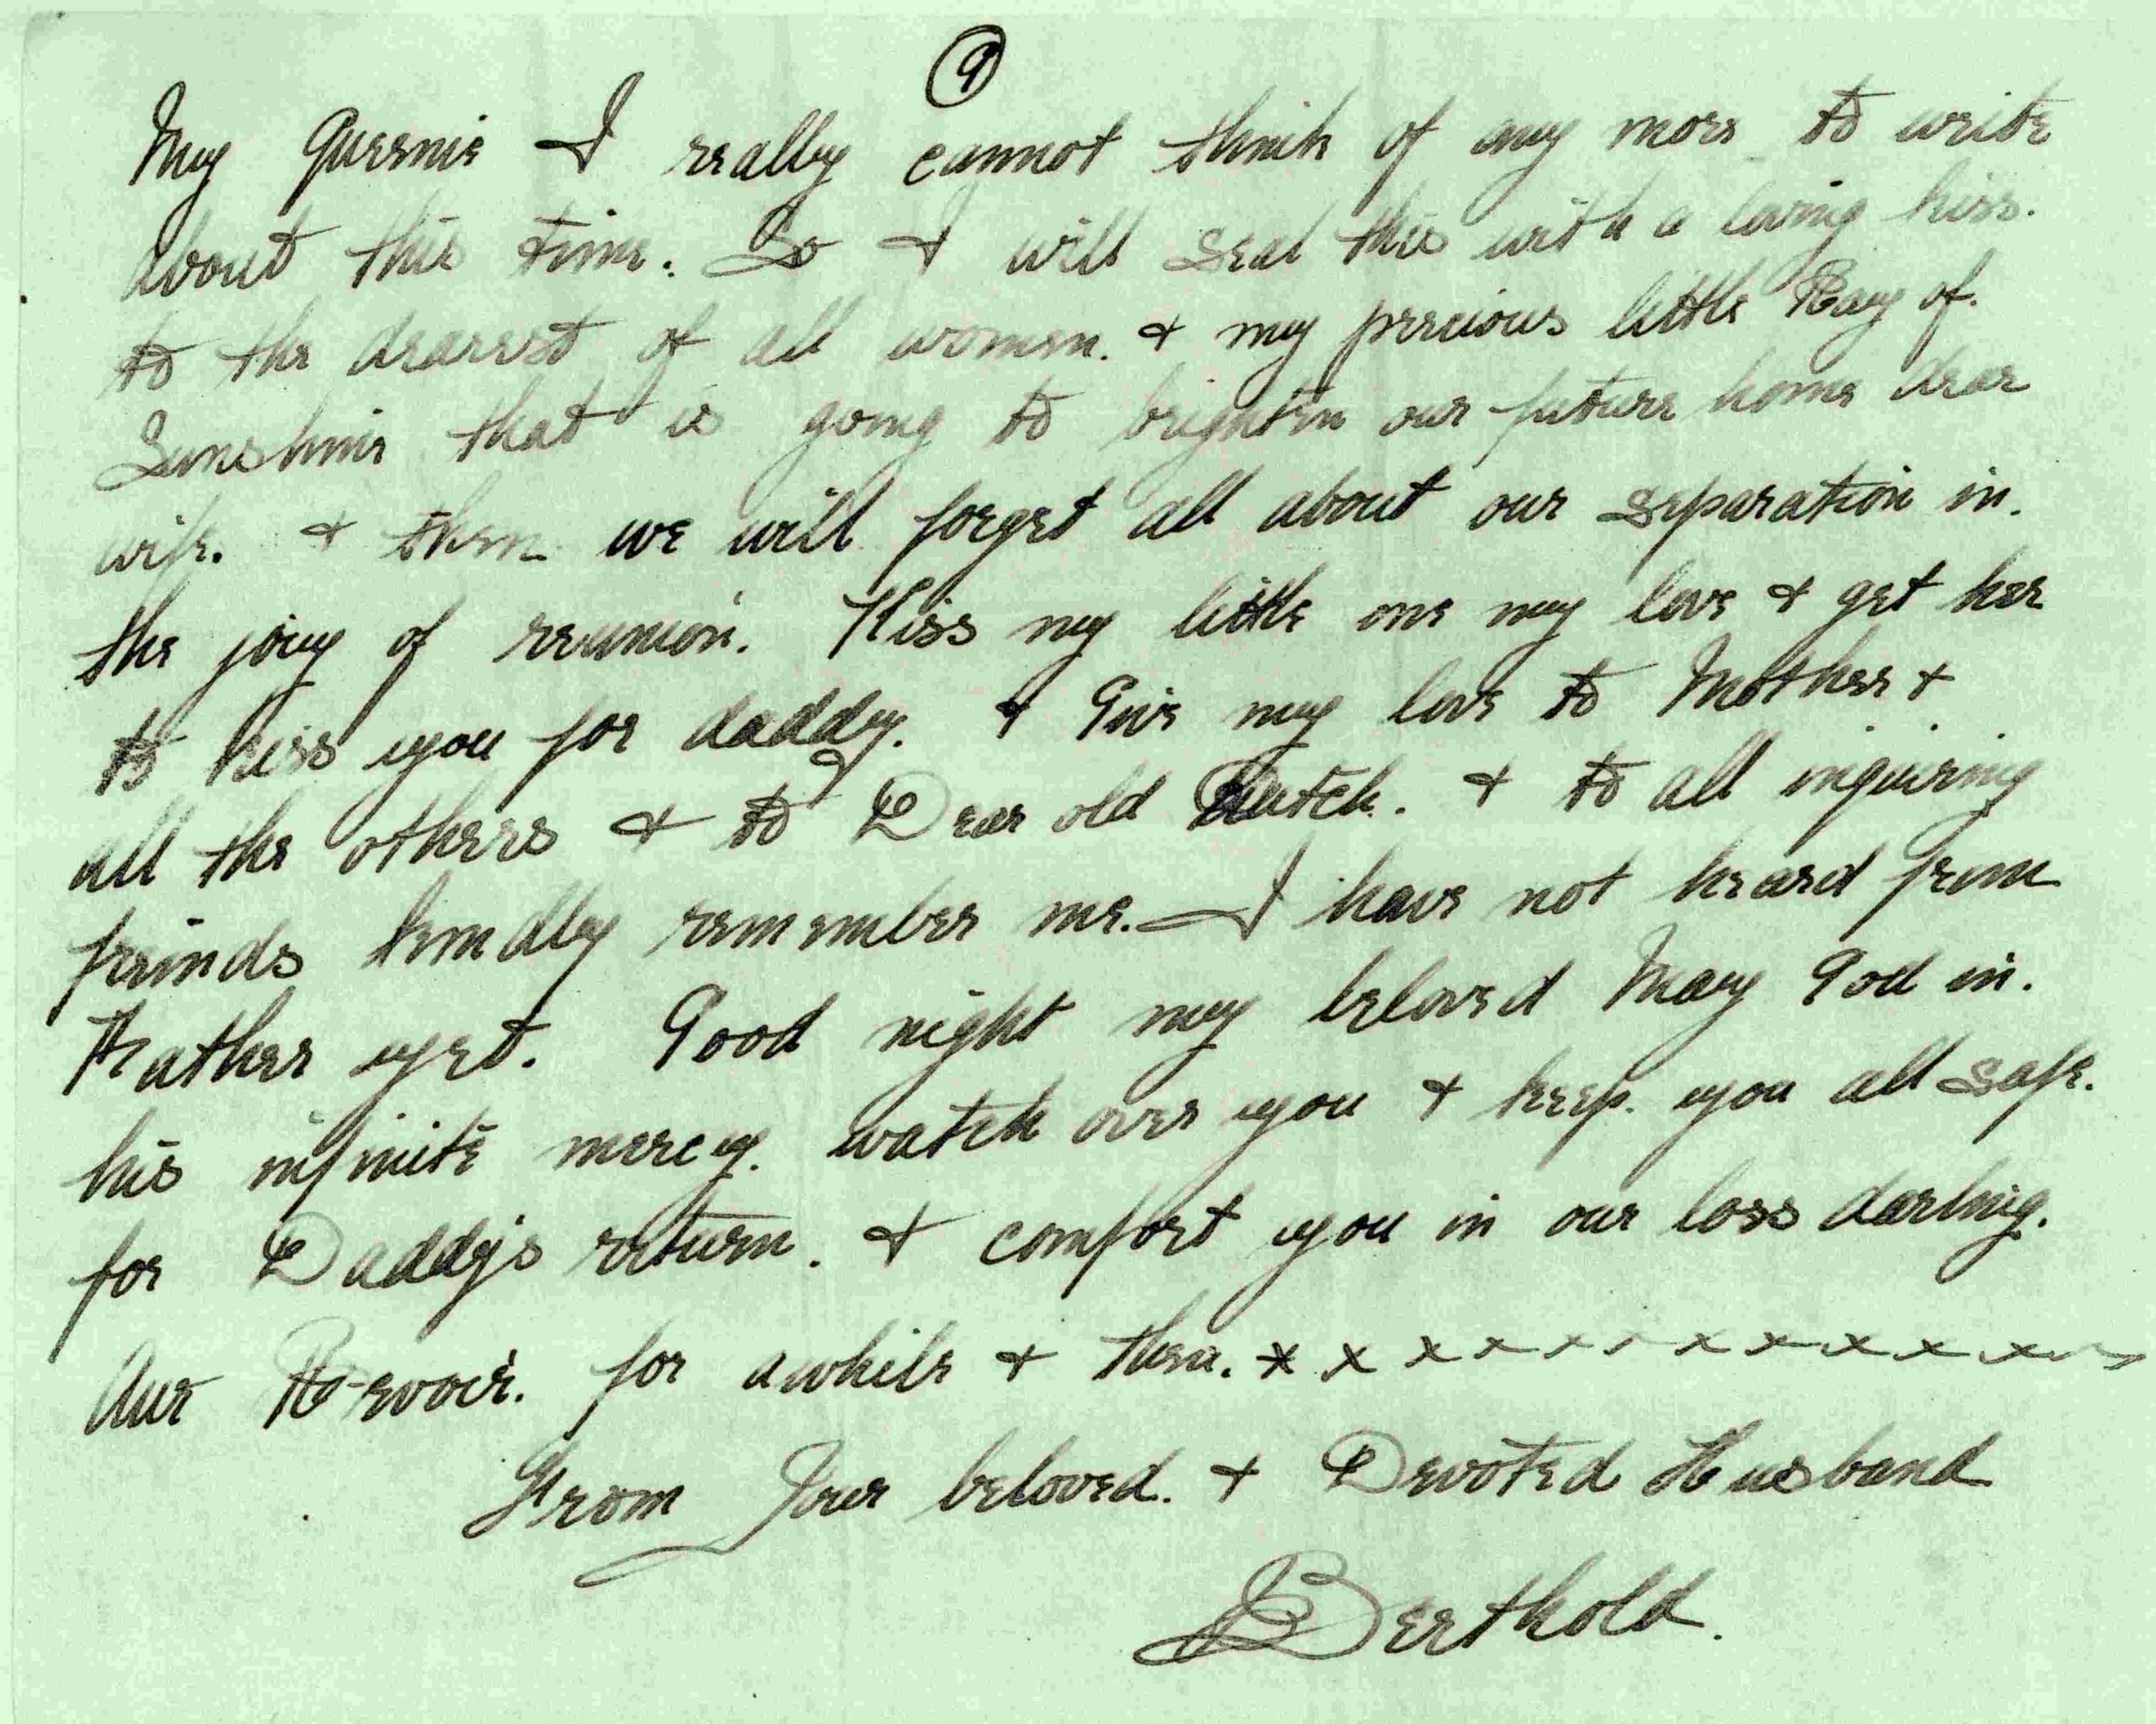 9
My Queenie I really cannot think of any more to write
about this time. So I will seal this with a loving kiss.
to the dearest of all women. & my precious little Ray of.
Sunshine that is going to brighten our future home dear
wife. & then we will forget all about our separation in.
the joy of reunion. Kiss my little one my love & get her
to kiss you for daddy. & Give my love to Mother &
all the others & to Dear old Dutch. & to all inquiring
freinds kindley remember me. I have not heard from
Father yet. Good night my beloved May God in.
his infinite mercy. watch over you & keep. you all safe.
for Daddy's return. & comfort you in our loss darling.
Aur Re-rvoir. for awhile & then. x x x x x x x x x x x x x
From Your beloved. & Devoted Husband
Berthold.